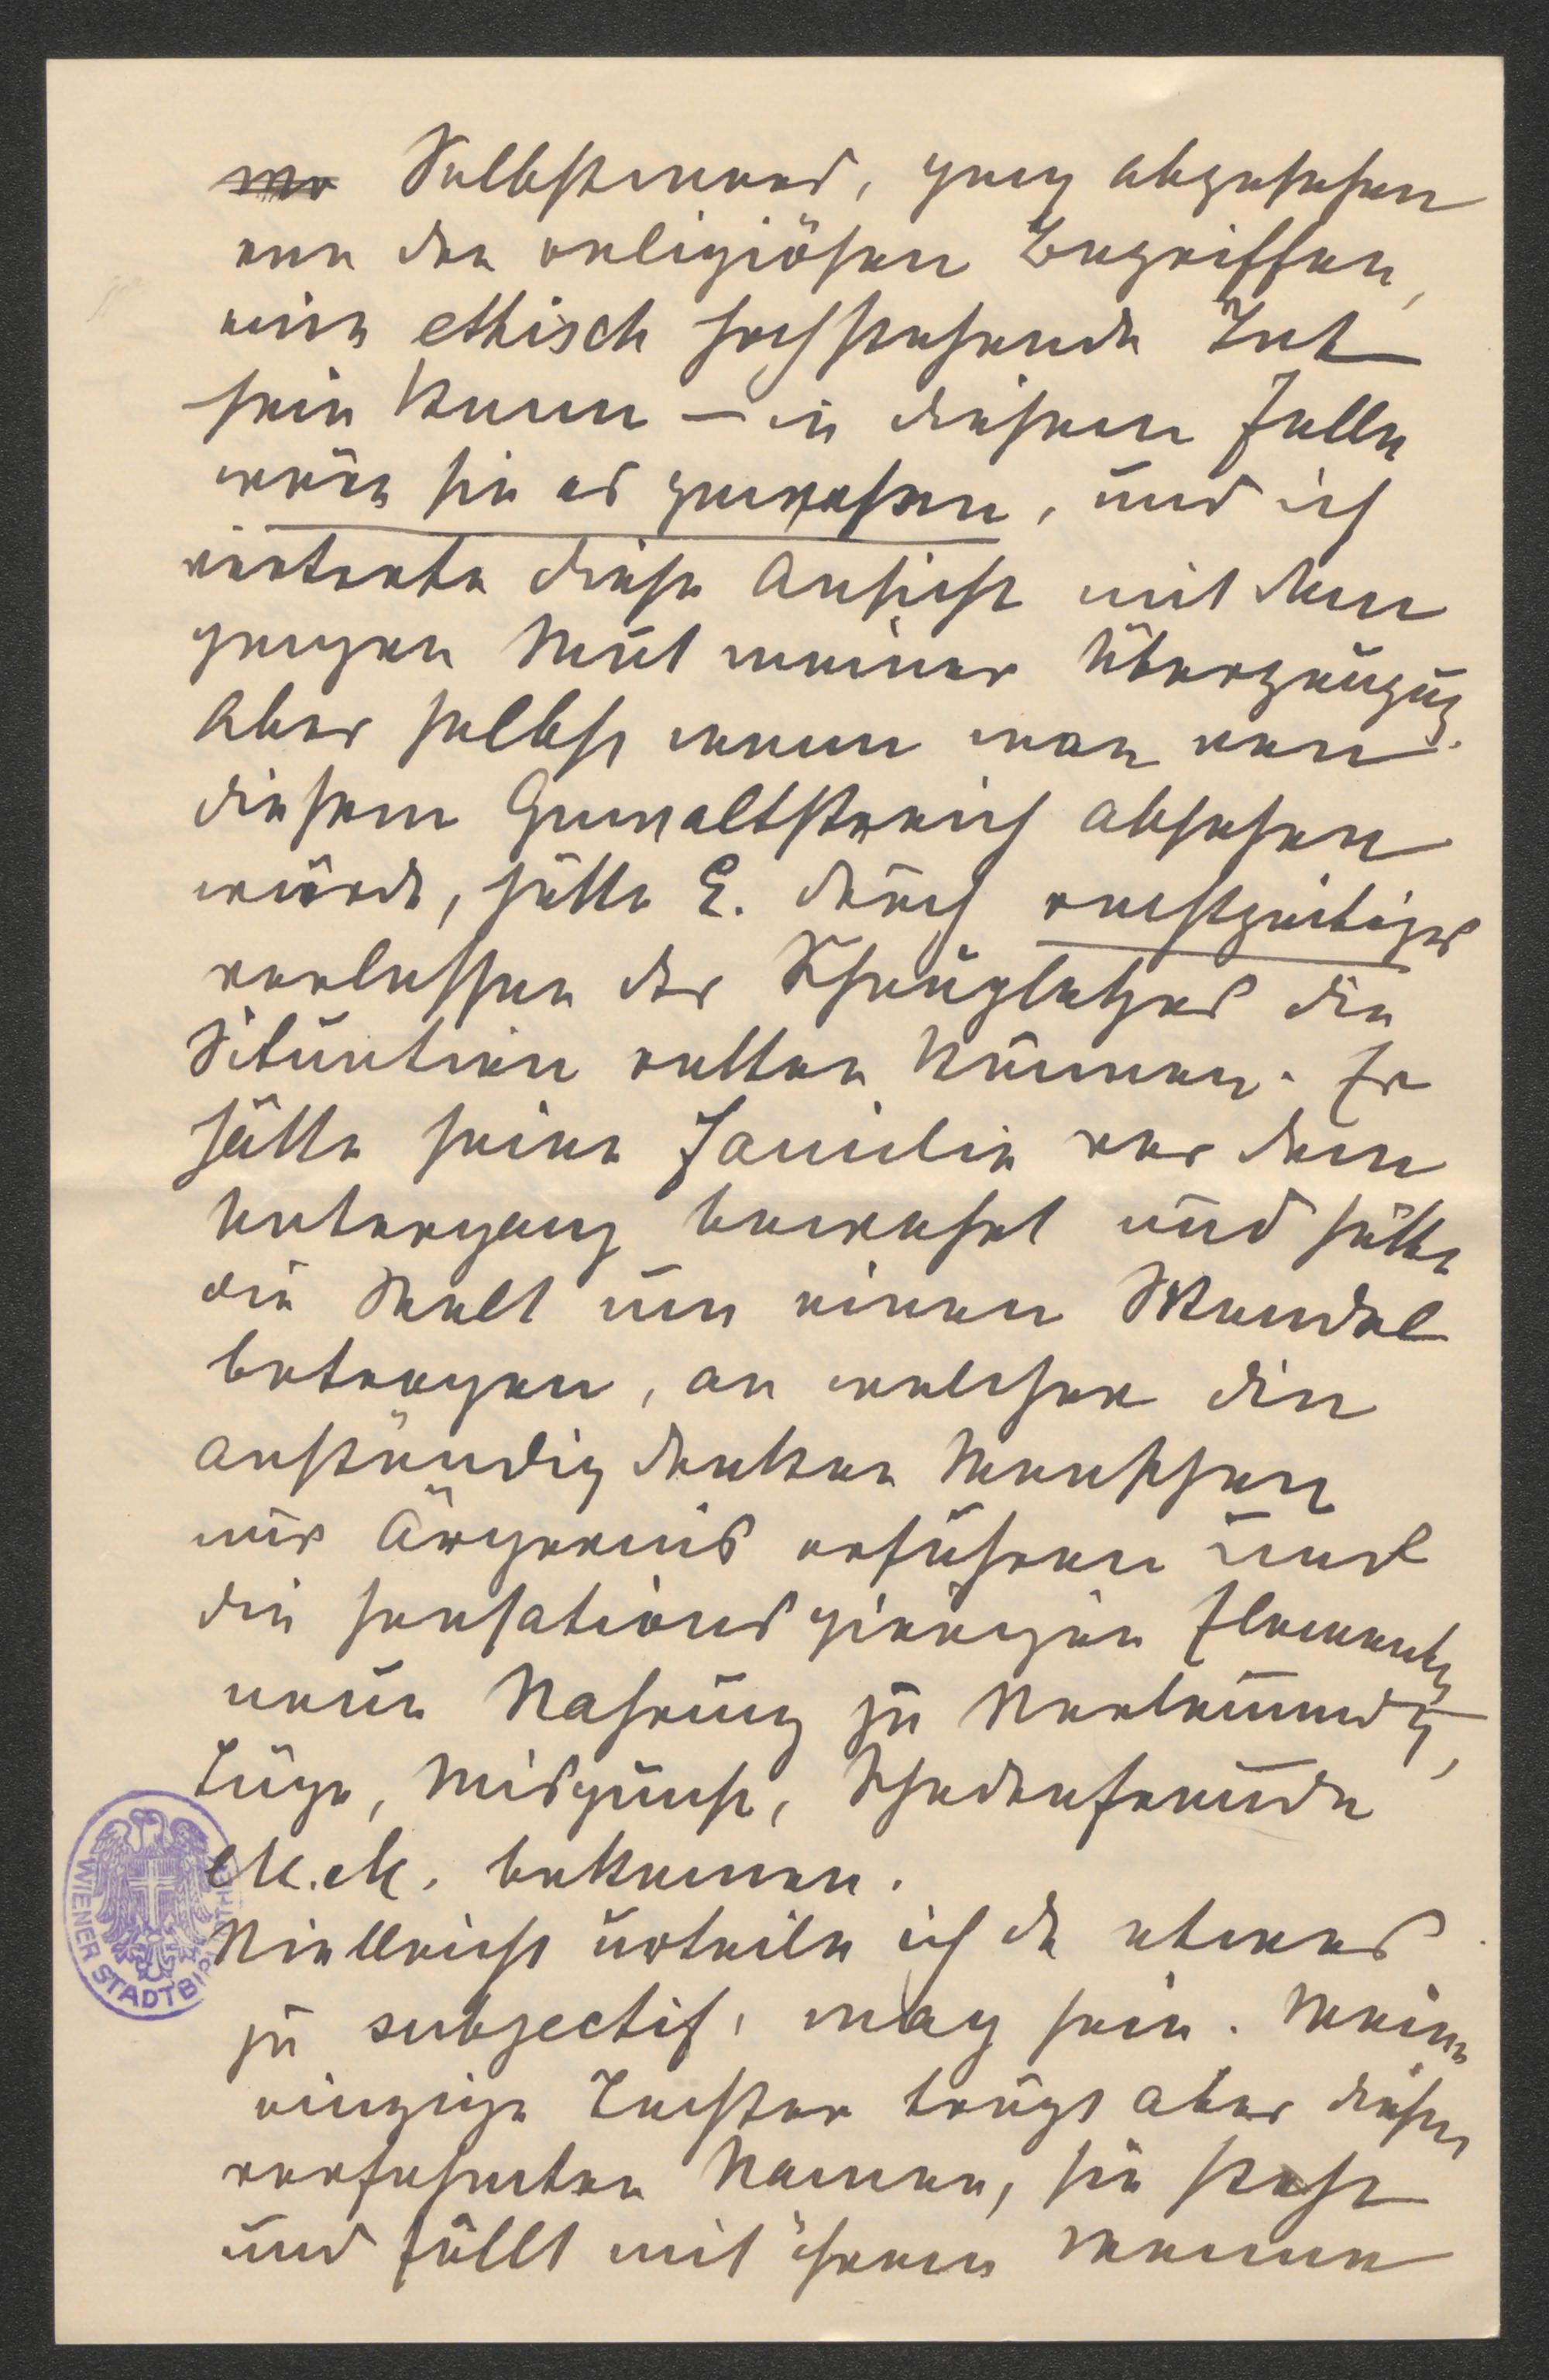 Selbstmord, ganz abgesehen
von den religiösen Begriffen,
eine ethisch hochstehende Tat
sein kann – in diesem Falle
wäre sie es gewesen, und ich
vertrete diese Ansicht mit dem
ganzen Mut meiner Überzeugung.
Aber selbst wenn man von
diesem Gewaltstreich absehen
würde, hätte E. durch rechtzeitiges
verlassen des Schauplatzes die
Situation retten können. Er
hätte seine Familie vor dem
Untergang bewahrt und hätte
die Welt um einen Skandal
betrogen, an welchen die
anständig denken Menschen
nur Ärgernis erfuhren und
die sensationsgierigen Elemente
neue Nahrung zu Verleumdg,
Lüge, Misgunst, Schadenfreude
etc. etc. bekamen.
Vielleicht urteile ich da etwas
zu subjectif, mag sein. Meine
einzige Tochter trägt aber diesen
verfehmten Namen, sie steht
und fällt mit ihrem Manne
WIENER STADTBIBLIOTHEK